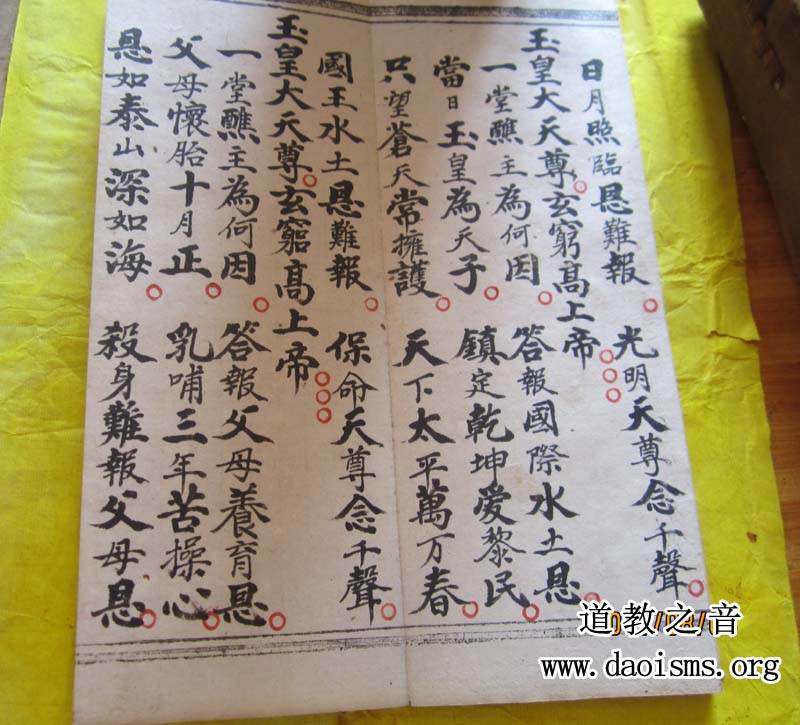 日月照臨恩難報 光明天尊念千聲
玉皇大天尊玄穷高上帝
一堂醮主為何因 答報國際水土恩
當日玉皇為天子 鎮定乾坤愛黎民
只望蒼天常擁護 天下太平萬万春
國王水土恩難報 保命天尊念千聲
玉皇大天尊玄窮高上帝
一堂醮主為何因 答報父母養育恩
父母懷胎十月正 乳哺三年苦操心
恩如泰山深如海 殺身難報父母恩
道教之音
www.daoisms.org